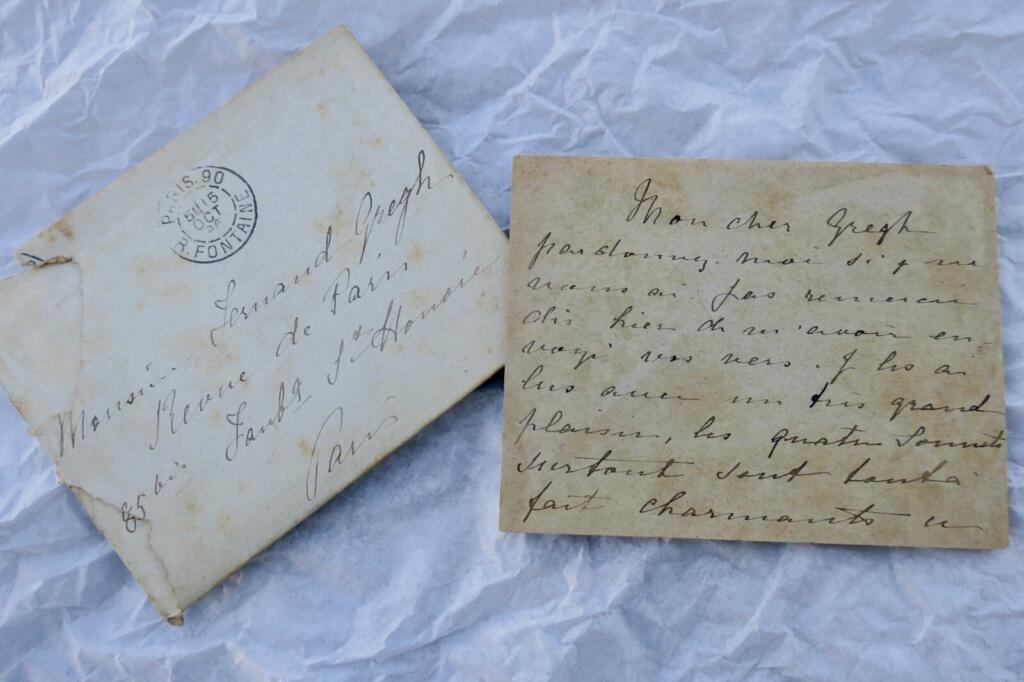 PARIS. 90
15
OCT
R. FONTAINE
Monsieur Fernand Gregh
Revue de Paris
85 bis Faubg St Honoré
Paris
Mon cher Gregh
pardonnez-moi si je ne
vous ai pas remercié
dès hier de m'avoir en-
voyé vos vers. Je les ai
lus avec un très grand
plaisir, les quatre Sonnets
surtout sont tout à
fait charmants